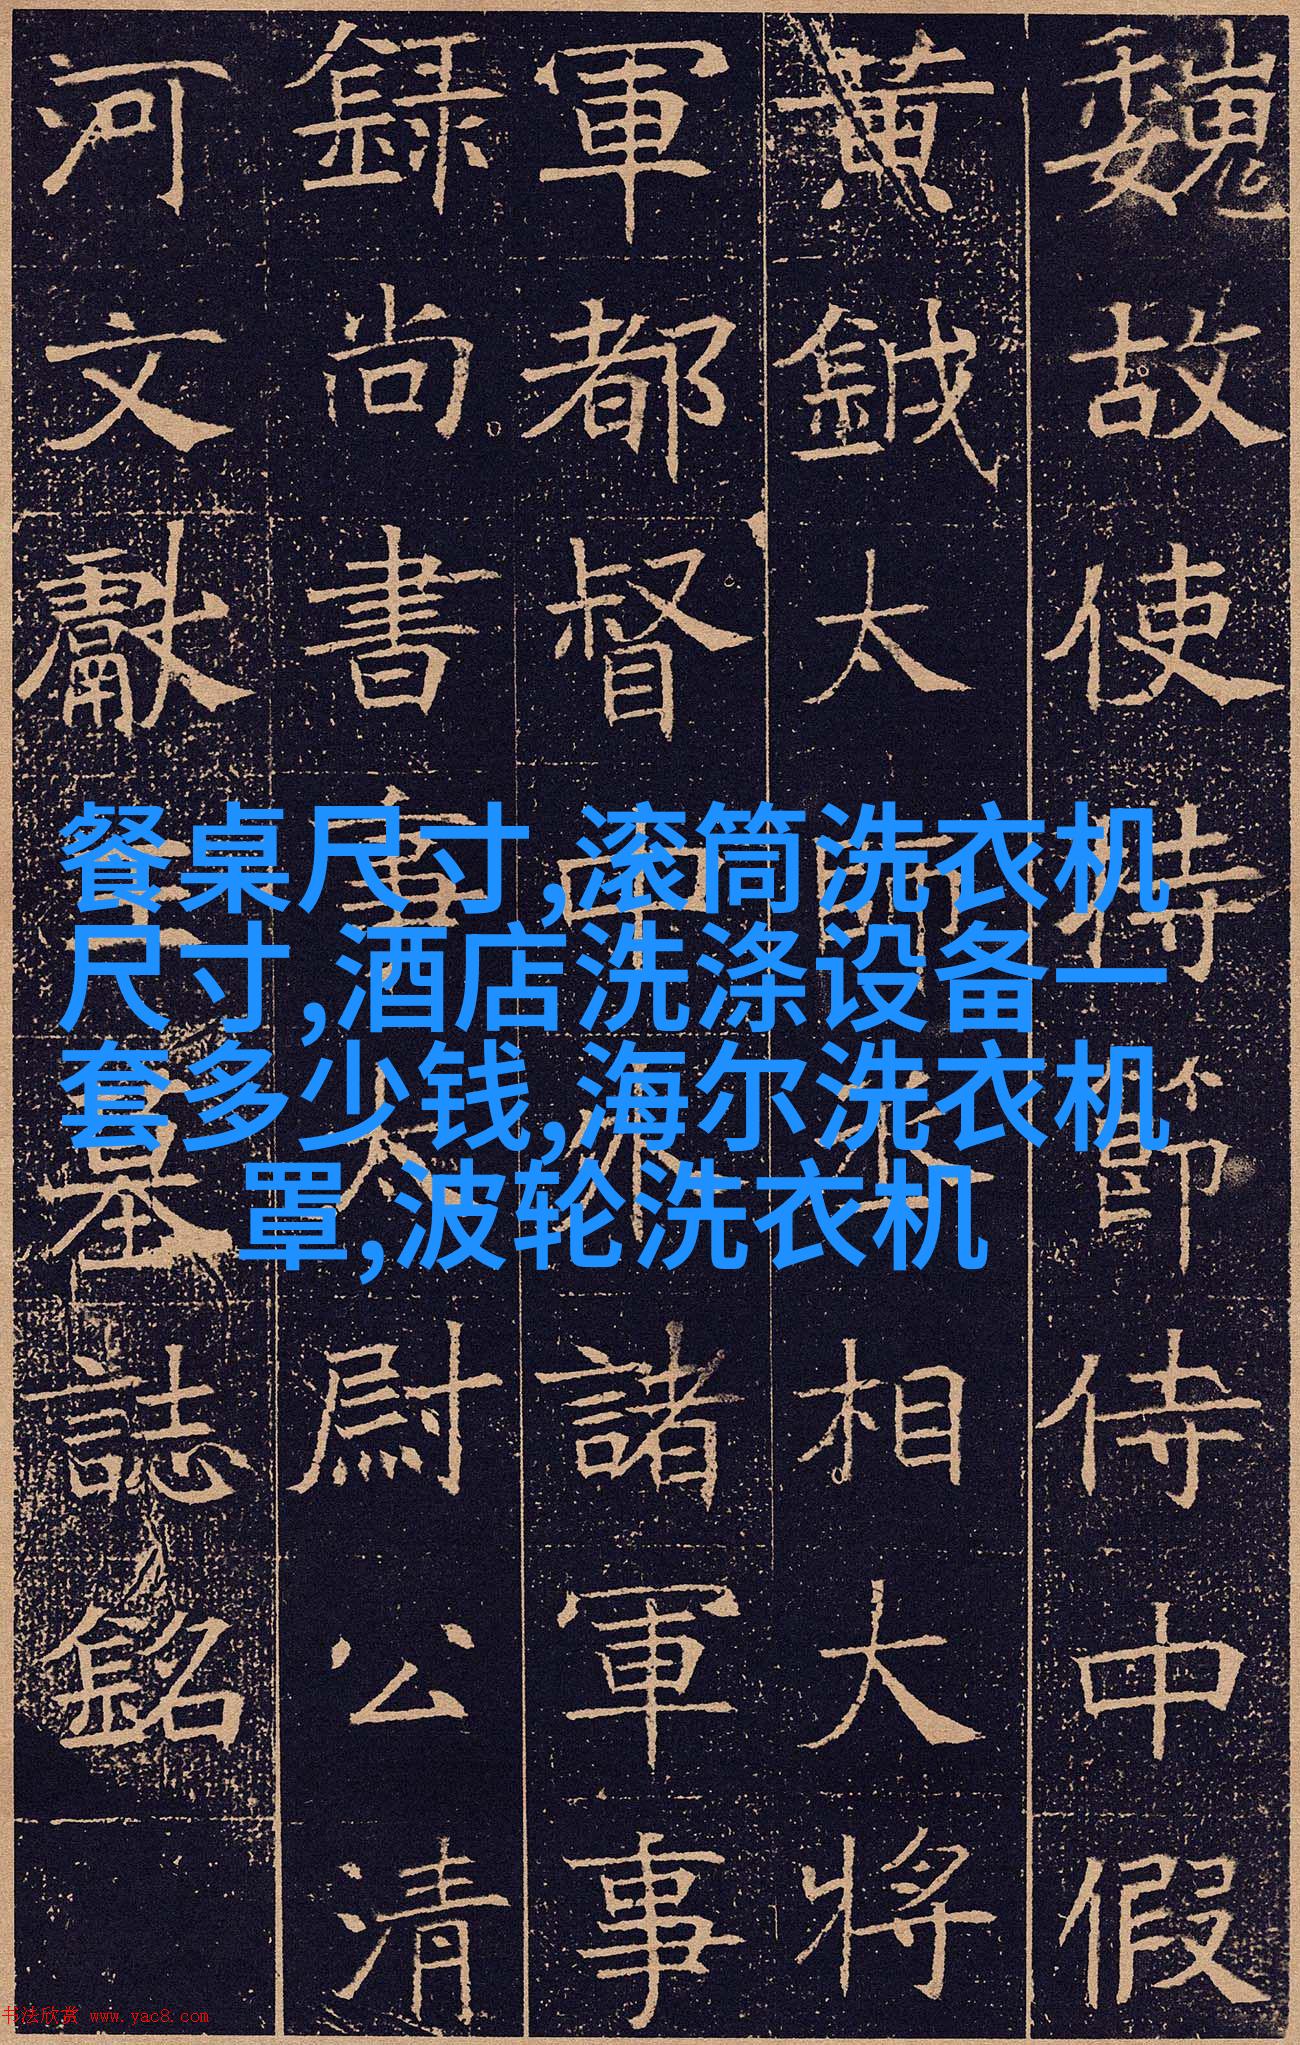 魏故使持節侍中假
黃鉞太師丞相大將
軍都督中外諸軍事
錄尚書事太尉公清
河文獻王墓誌銘
餐桌尺寸,滚筒洗衣机
尺寸,酒店洗涤设备一
套多少钱,海尔洗衣机
罩,波轮洗衣机
书法欣赏 www.yac8.com